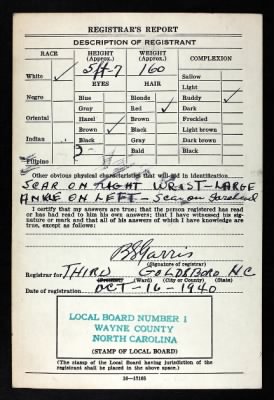 REGISTRAR'S REPORT
DESCRIPTION OF REGISTRANT
RACE HEIGHT (Approx.) WEIGHT (Approx.) COMPLEXION
White ✓ 5 ft-7 160 Sallow
EYES HAIR Light
Negro Blue Blonde Ruddy ✓
Gray Red ✓ Dark
Oriental Hazel Brown Freckled
Brown ✓ Black Light brown
Indian Black Gray Dark brown
Bald Black
Filipino
Other obvious physical characteristics that will aid in identification
SCAR ON RIGHT WRIST—LARGE
ANKLE ON LEFT— Scar on forehead
I certify that my answers are true; that the person registered has read
or has had read to him his own answers; that I have witnessed his
signature or mark and that all of his answers of which I have knowledge
are true, except as follows:
(Signature of registrar)
Registrar for THIRD GOLDSBORO N.C.
(Precinct) (Ward) (City or County) (State)
Date of registration OCT-16-1940
LOCAL BOARD NUMBER 1
WAYNE COUNTY
NORTH CAROLINA
(STAMP OF LOCAL BOARD)
(The stamp of the Local Board having jurisdiction of the
registrant shall be placed in the above space.)
16-17105